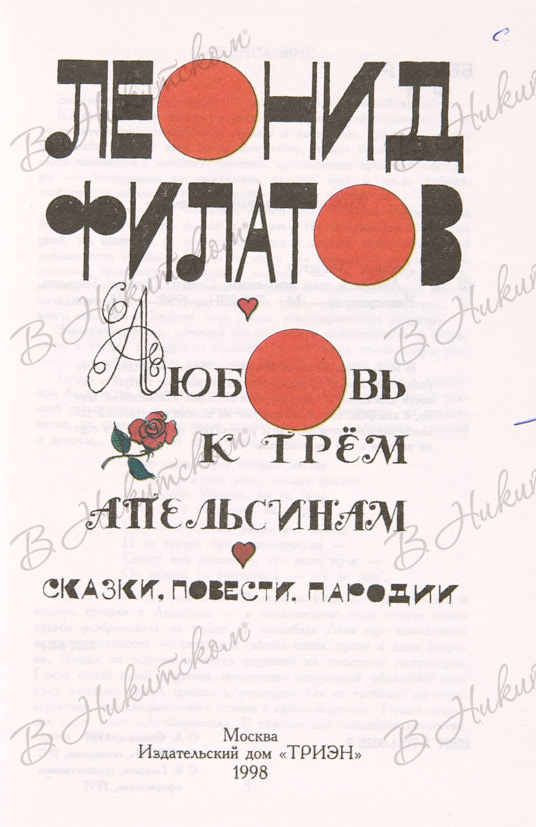 ЛЕОНИД
ФИЛАТОВ
ЛЮБОВЬ
К ТРЁМ
АПЕЛЬСИНАМ
СКАЗКИ, ПОВЕСТИ, ПАРОДИИ
Москва
Издательский дом «ТРИЭН»
1998
В Никитском®
В Никитском®
В Никитском®
В Никитском®